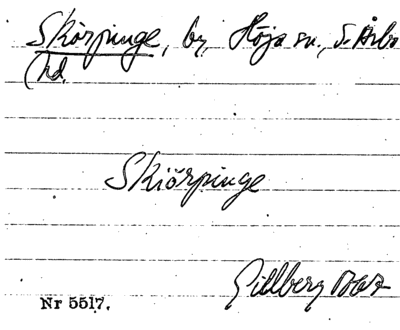 Skörpinge, by, Höja sn., S. Åsbo
hd.
Skiörpinge
Gillberg
Nr 5517.